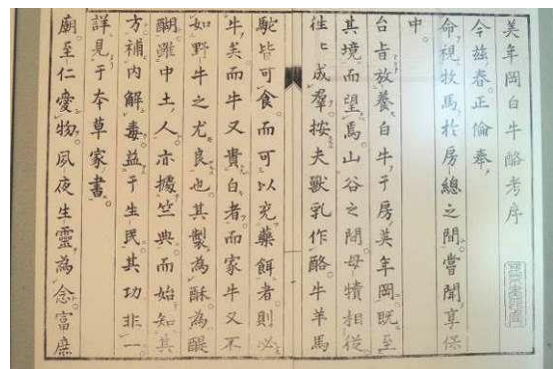 美年岡白牛酪考序
今玆春正倫奉
命視牧馬於房總之間嘗聞享保
中
台旨放養白牛于房美年岡既至
其境而望焉山谷之間母犢相従
徃〻成羣按夫獸乳作酪牛羊馬
駝皆可食而可以充藥餌者則必
牛矣而牛又貴白者而家牛又不
如野牛之尤良也其製為酥為醍
醐濫中土人亦據竺典而始知其
方補内解毒益于生民其功非一
詳見于本草家書
廟至仁愛物夙夜生靈為念富庶